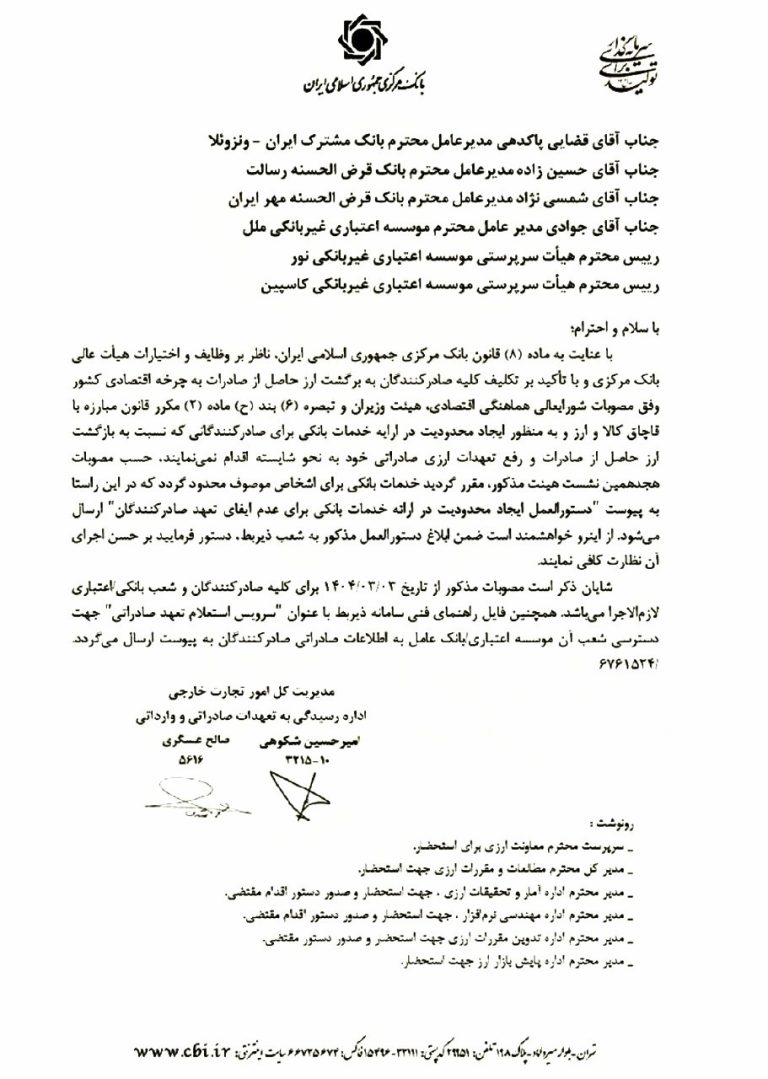 بانک مرکزی جمهوری اسلامی ایران
سرمایه گذاری
برای
تولید
جناب آقای قضایی پاکدهی مدیرعامل محترم بانک مشترک ایران - ونزوئلا
جناب آقای حسین زاده مدیرعامل محترم بانک قرض الحسنه رسالت
جناب آقای شمسی نژاد مدیرعامل محترم بانک قرض الحسنه مهر ایران
جناب آقای جوادی مدیر عامل محترم موسسه اعتباری غیربانکی ملل
رییس محترم هیأت سرپرستی موسسه اعتباری غیربانکی نور
رییس محترم هیأت سرپرستی موسسه اعتباری غیربانکی کاسپین
با سلام و احترام؛
با عنایت به ماده (۸) قانون بانک مرکزی جمهوری اسلامی ایران، ناظر بر وظایف و اختیارات هیأت عالی
بانک مرکزی و با تأکید بر تکلیف کلیه صادرکنندگان به برگشت ارز حاصل از صادرات به چرخه اقتصادی کشور
وفق مصوبات شورایعالی هماهنگی اقتصادی، هیئت وزیران و تبصره (۶) بند (ح) ماده (۲) مکرر قانون مبارزه با
قاچاق کالا و ارز و به منظور ایجاد محدودیت در ارایه خدمات بانکی برای صادرکنندگانی که نسبت به بازگشت
ارز حاصل از صادرات و رفع تعهدات ارزی صادراتی خود به نحو شایسته اقدام نمی‌نمایند، حسب مصوبات
هجدهمین نشست هیئت مذکور، مقرر گردید خدمات بانکی برای اشخاص موصوف محدود گردد که در این راستا
به پیوست "دستورالعمل ایجاد محدودیت در ارائه خدمات بانکی برای عدم ایفای تعهد صادرکنندگان" ارسال
می‌شود. از اینرو خواهشمند است ضمن ابلاغ دستورالعمل مذکور به شعب ذیربط، دستور فرمایید بر حسن اجرای
آن نظارت کافی نمایند.
شایان ذکر است مصوبات مذکور از تاریخ ۱۴۰۴/۰۳/۰۳ برای کلیه صادرکنندگان و شعب بانکی/اعتباری
لازم‌الاجرا می‌باشد. همچنین فایل راهنمای فنی سامانه ذیربط با عنوان "سرویس استعلام تعهد صادراتی" جهت
دسترسی شعب آن موسسه اعتباری/بانک عامل به اطلاعات صادراتی صادرکنندگان به پیوست ارسال می‌گردد.
/۶۷۶۱۵۲۴
مدیریت کل امور تجارت خارجی
اداره رسیدگی به تعهدات صادراتی و وارداتی
امیرحسین شکوهی صالح عسگری
۳۲۱۵-۱۰ ۵۶۱۶
رونوشت :
_ سرپرست محترم معاونت ارزی برای استحضار.
_ مدیر کل محترم مطالعات و مقررات ارزی جهت استحضار.
_ مدیر محترم اداره آمار و تحقیقات ارزی ، جهت استحضار و صدور دستور اقدام مقتضی.
_ مدیر محترم اداره مهندسی نرم‌افزار ، جهت استحضار و صدور دستور اقدام مقتضی.
_ مدیر محترم اداره تدوین مقررات ارزی جهت استحضار و صدور دستور مقتضی.
_ مدیر محترم اداره پایش بازار ارز جهت استحضار.
تهران-بلوار میرداماد-پلاک ۱۹۸ تلفن: ۲۹۹۵۱ کدپستی: ۳۳۱۱۱-۱۵۴۹۶ فاکس: ۶۶۷۳۵۶۷۴ سایت اینترنتی: www.cbi.ir